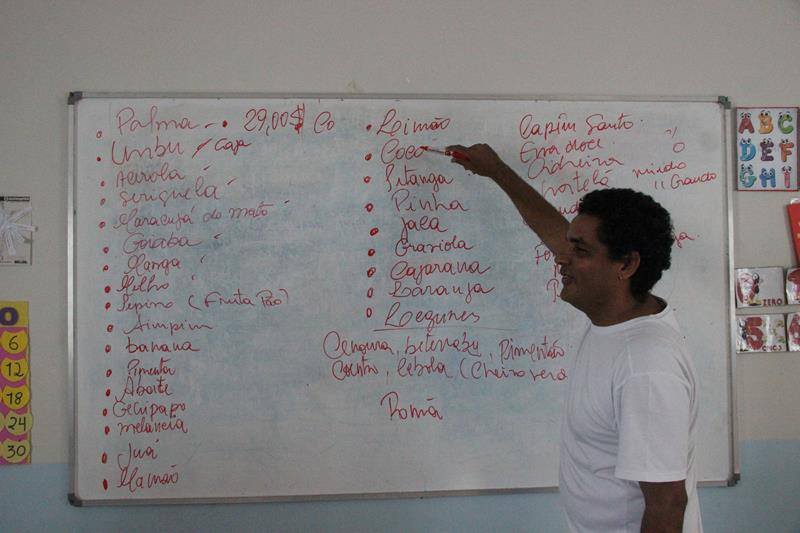 Palma - . 29,00$ Co
Umbu / Caja
Acirola
Seriguela
Maracujá do mato
Goiaba
Manga
Milho
Pepino (Fruta Pão)
Aimpim
banana
Pimenta
Abacate
Genipapo
melancia
Juá
Mamão
Limão
Coco
Pitanga
Pinha
Jaca
Graviola
Cajarana
Laranja
Legumes
Cenoura, beterraba, Pimentão
Coentro, Cebola (Cheiro verd
Romã
Capim Santo
Erva doce
Cidreira
hortelã miúdo
" Graudo
A B C
D E F
G H I
ZERO
6
12
18
24
30